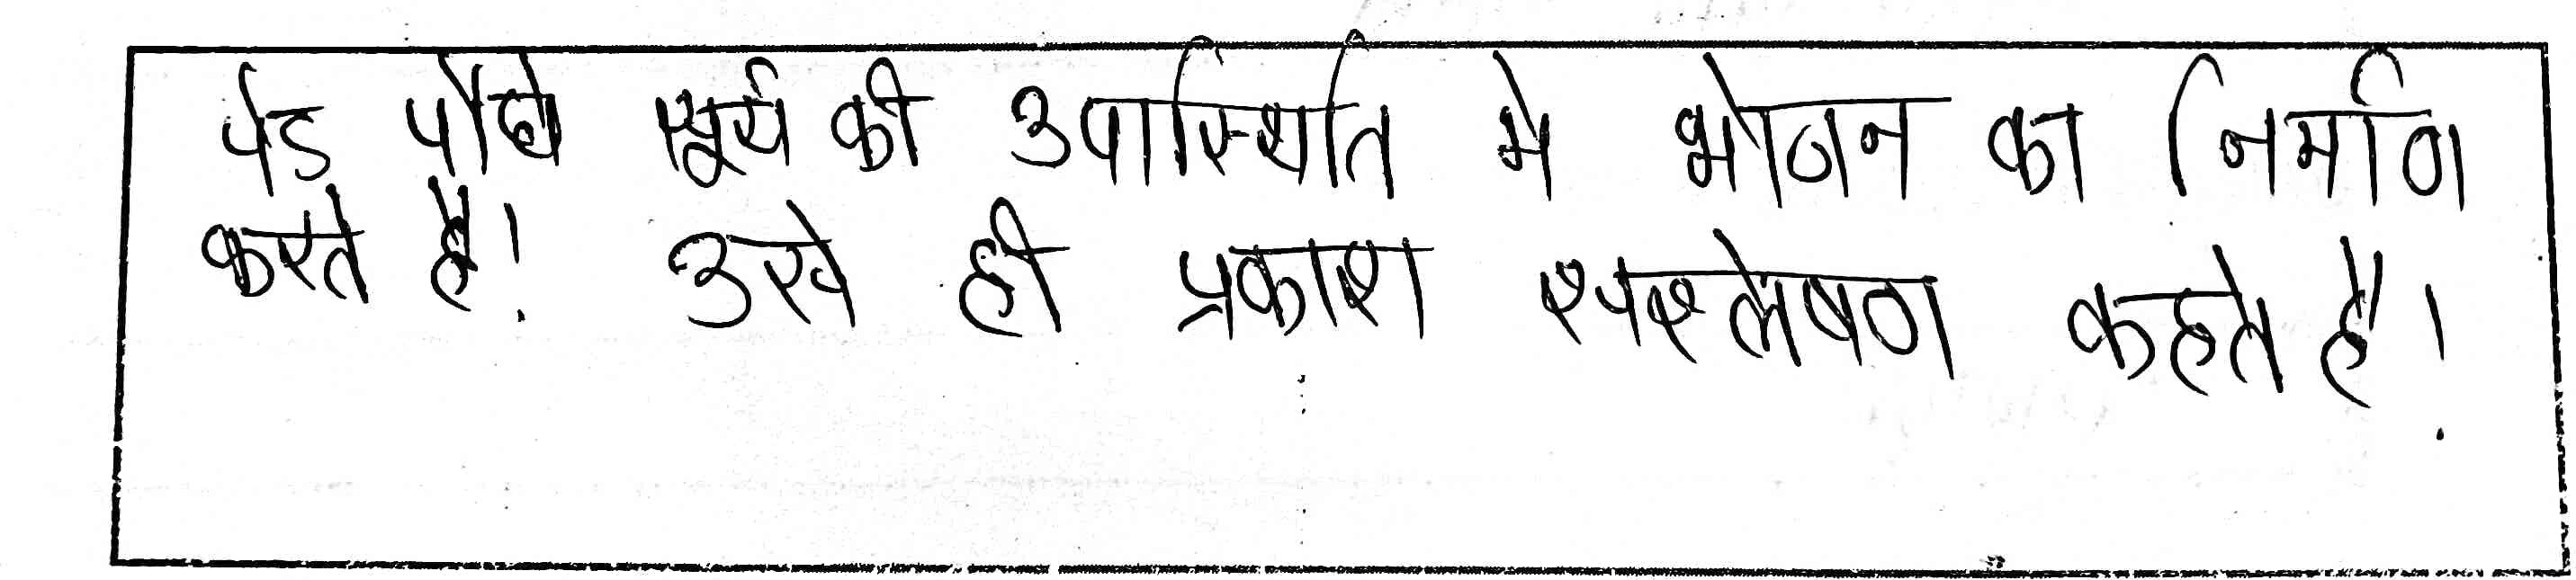 पेड पौधे सूर्य की उपस्थिति मे भोजन का निर्माण
करते है! उसे ही प्रकाश श्पश्लेषण कहते है।